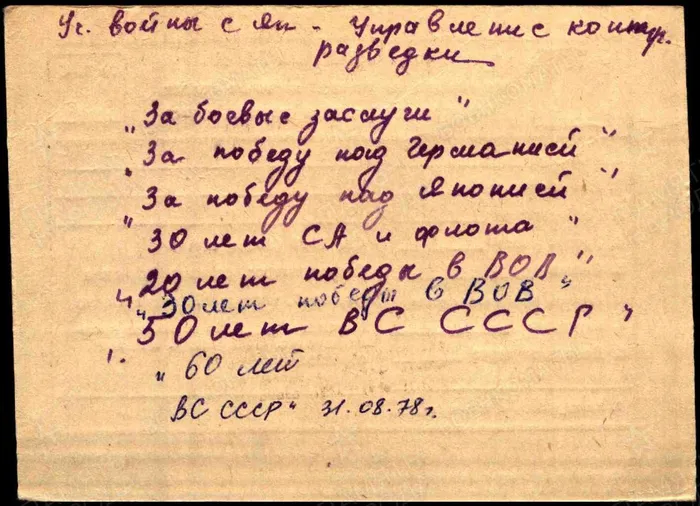 Уч. войны с яп. - Управление контр.
разведки
"За боевые заслуги"
"За победу над Германией"
"За победу над Японией"
"30 лет СА и флота"
"20 лет победы в ВОВ"
"30 лет победы в ВОВ"
"50 лет ВС СССР"
"60 лет
ВС СССР" 31.08.78г.